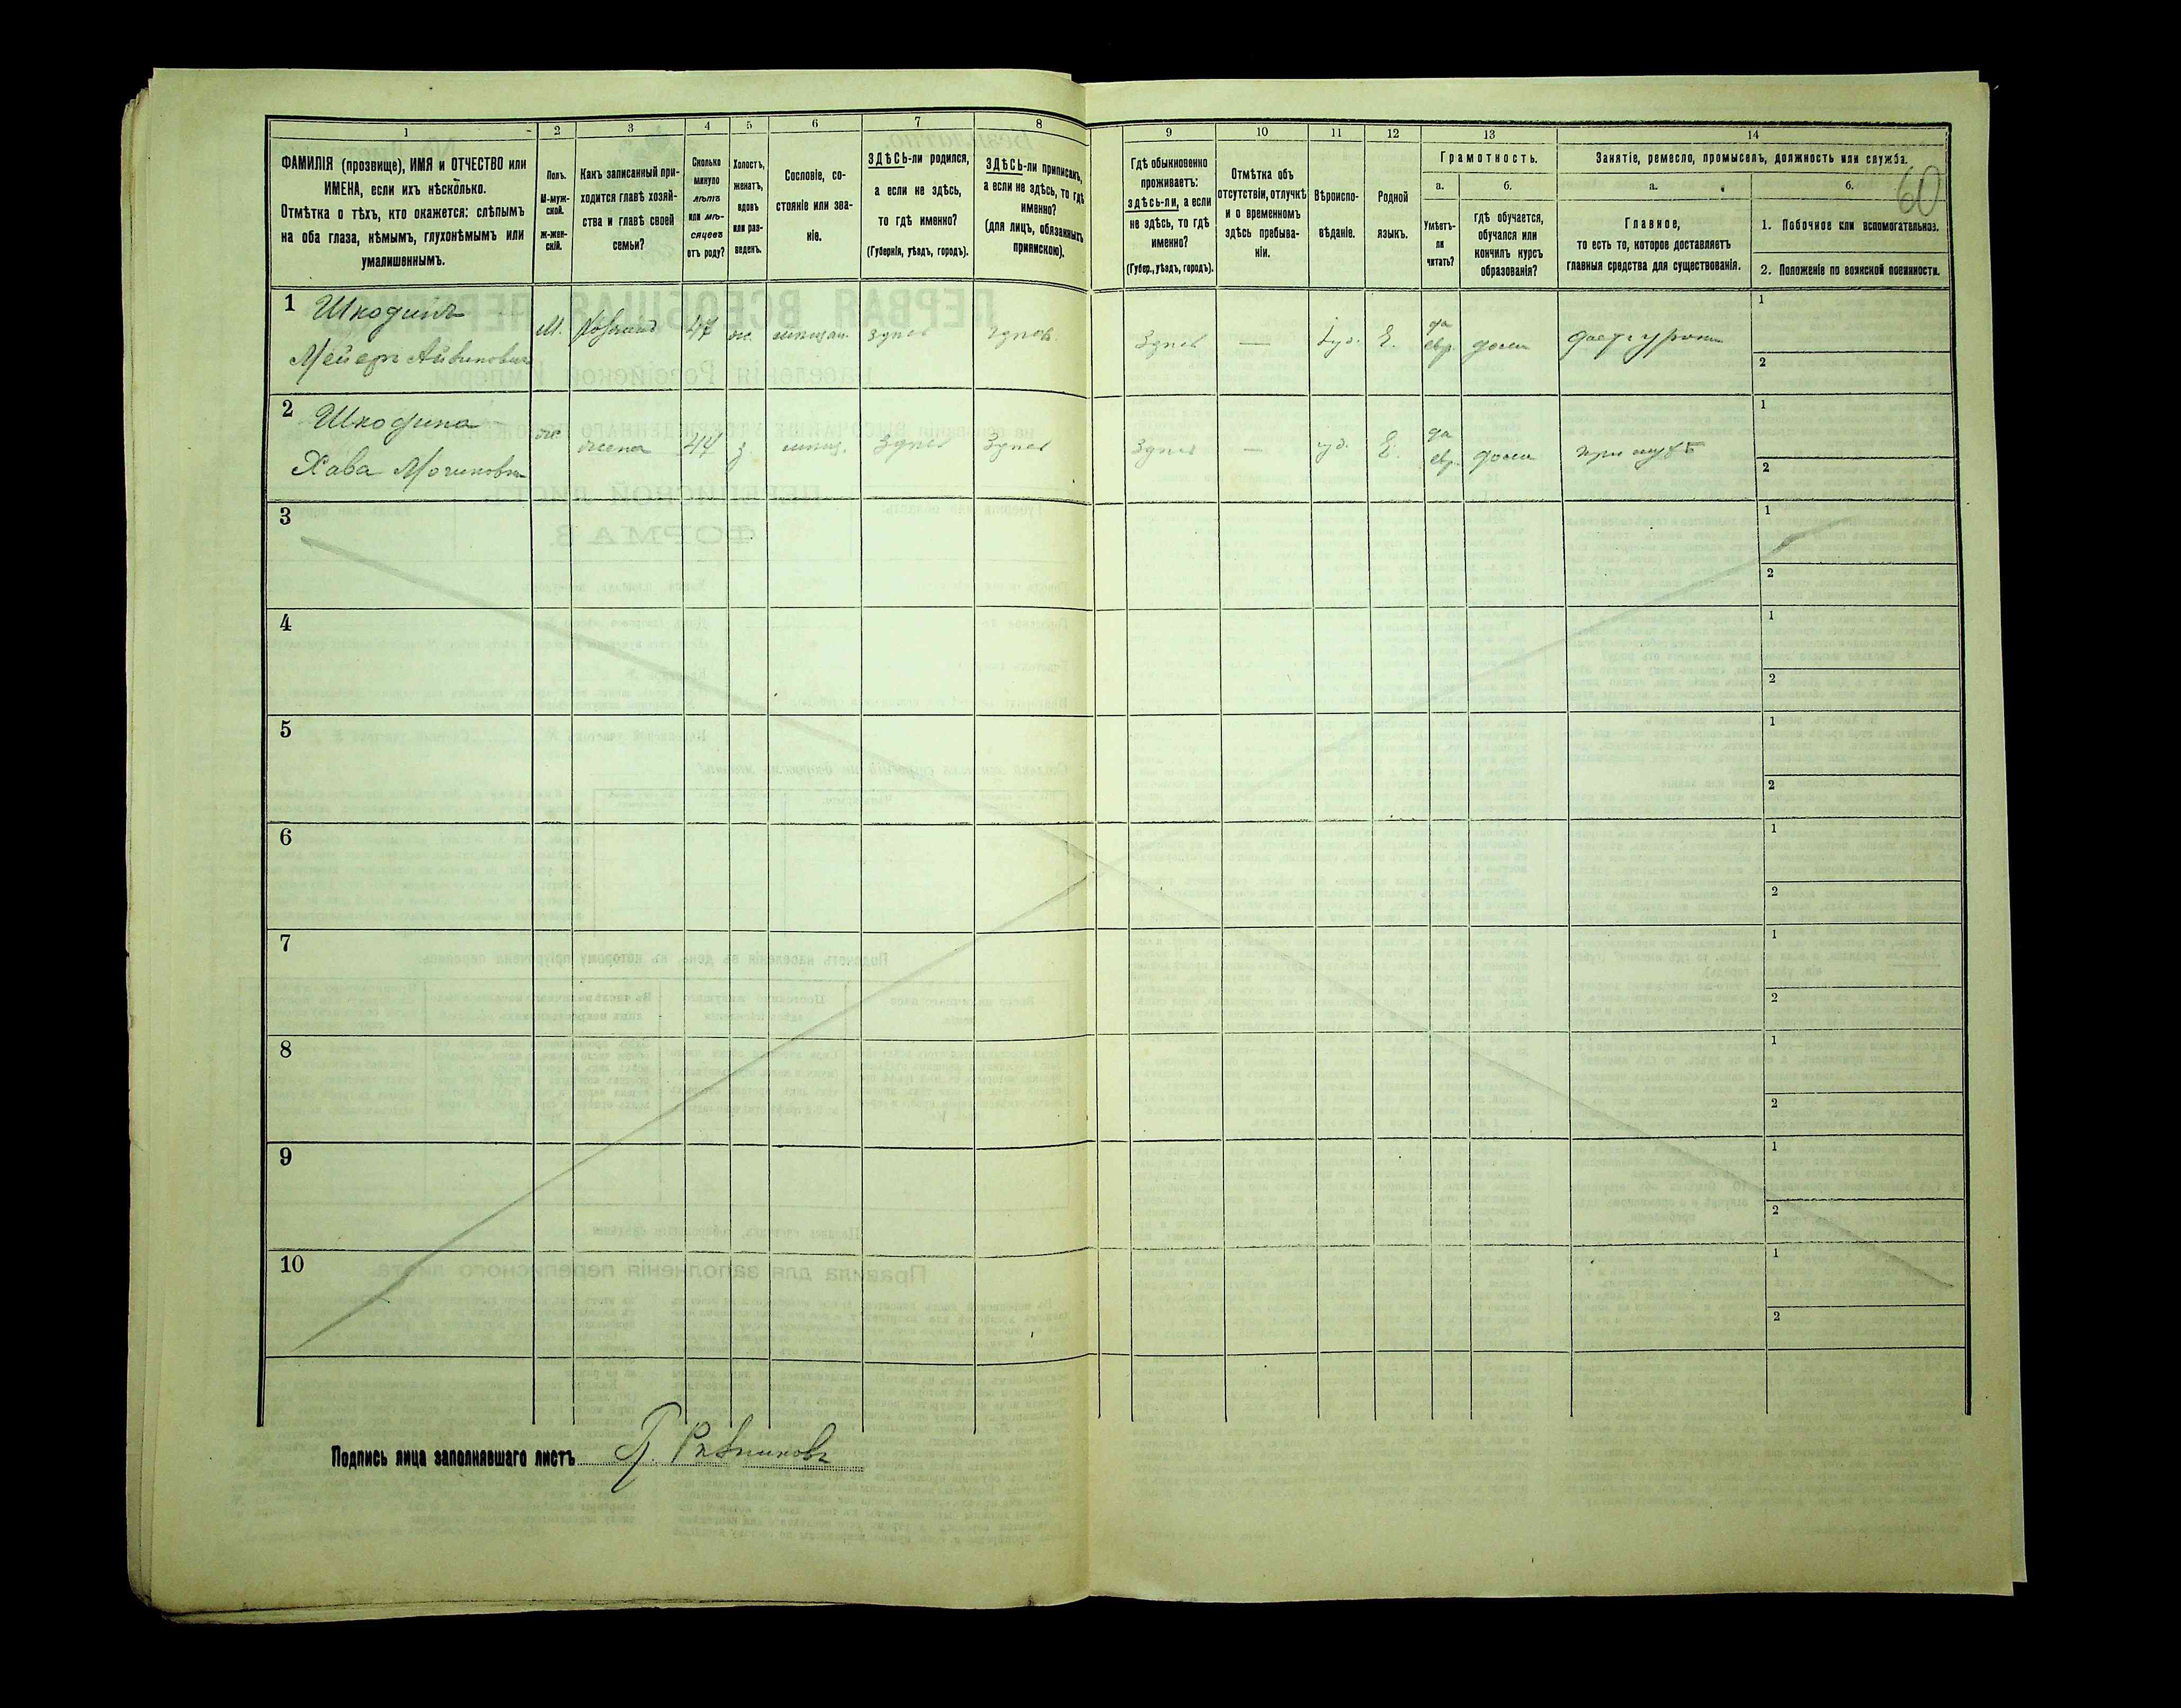 1 2 3 4 5 6 7 8 9 10 11 12 13 14
ФАМИЛІЯ (прозвище), ИМЯ и ОТЧЕСТВО или
ИМЕНА, если ихъ нѣсколько.
Отмѣтка о тѣхъ, кто окажется: слѣпымъ
на оба глаза, нѣмымъ, глухонѣмымъ или
умалишеннымъ.
Полъ.
М-муж-
ской.
ж-жен-
скій.
Какъ записанный при-
ходится главѣ хозяй-
ства и главѣ своей
семьи?
Сколько
минуло
лѣтъ
или мѣ-
сяцевъ
отъ роду?
Холостъ,
женатъ,
вдовъ
или раз-
веденъ.
Сословіе, со-
стояніе или зва-
ніе.
ЗДѢСЬ-ли родился,
а если не здѣсь,
то гдѣ именно?
(Губернія, уѣздъ, городъ).
ЗДѢСЬ-ли приписанъ,
а если не здѣсь, то гдѣ
именно?
(для лицъ, обязанныхъ
припискою).
Гдѣ обыкновенно
проживаетъ:
здѣсь-ли, а если
не здѣсь, то гдѣ
именно?
(Губер., уѣздъ, городъ).
Отмѣтка объ
отсутствіи, отлучкѣ
и о временномъ
здѣсь пребыва-
ніи.
Вѣроиспо-
вѣданіе.
Родной
языкъ.
Грамотность.
а.
Умѣетъ-
ли
читать?
б.
гдѣ обучается,
обучался или
кончилъ курсъ
образованія?
Занятіе, ремесло, промыселъ, должность или служба.
а.
Главное,
то есть то, которое доставляетъ
главныя средства для существованія.
б.
60
1. Побочное или вспомогательное.
2. Положеніе по воинской повинности.
1 Шкодинъ
Мейеръ
М. 47 ж. здѣсь здѣсь здѣсь — Іуд. Е. да евр. дома даетъ уроки 1
2
2 Шкодина
Хава
ж жена 44 з. мѣщ. здѣсь здѣсь здѣсь — іуд. Е. да евр. дома при мужѣ 1
2
3 1
2
4 1
2
5 1
2
6 1
2
7 1
2
8 1
2
9 1
2
10 1
2
Подпись лица заполнявшаго листъ